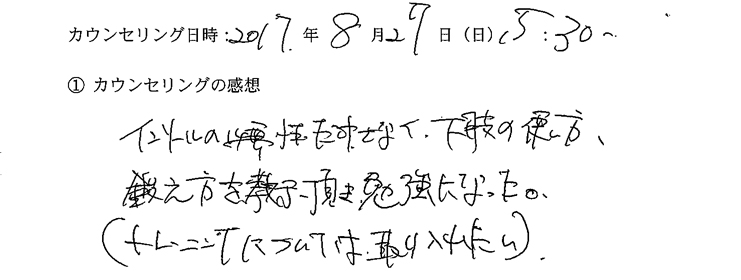 カウンセリング日時：2017 年 8 月 27 日（日）15：30～
① カウンセリングの感想
インソールの必要性だけでなく、下肢の使い方、
鍛え方を教えて頂き勉強になった。
（トレーニングについては、取り入れたい）.